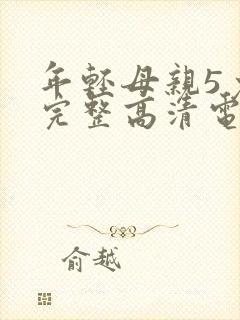 年輕母親5
完整高清電
俞越